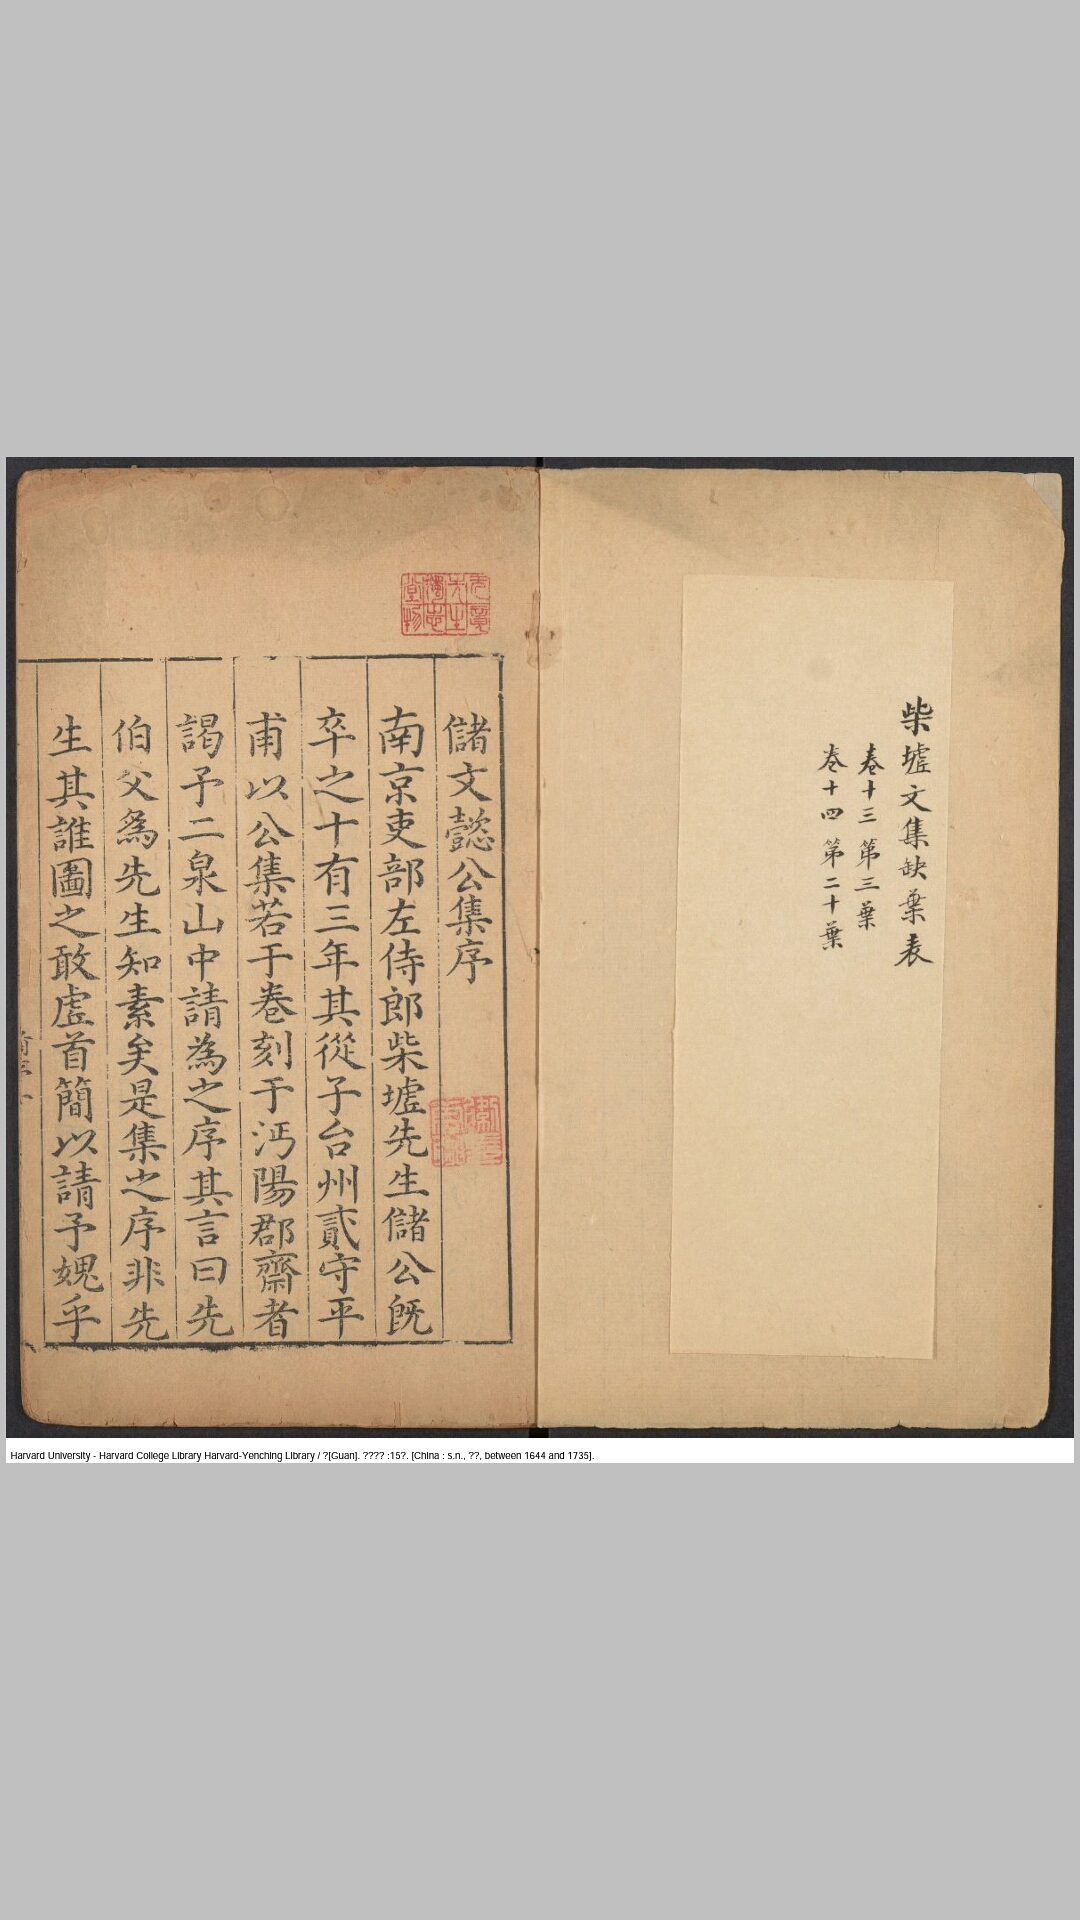 柴墟文集缺葉表
卷十三 第三葉
卷十四 第二十葉
儲文懿公集序
南京吏部左侍郎柴墟先生儲公旣
卒之十有三年其從子台州貳守平
甫以公集若干卷刻于沔陽郡齋者
謁予二泉山中請為之序其言曰先
伯父爲先生知素矣是集之序非先
生其誰圖之敢虛首簡以請予媿乎
Harvard University - Harvard College Library Harvard-Yenching Library / ?[Guan]. ???? :15?. [China : s.n., ??, between 1644 and 1735].